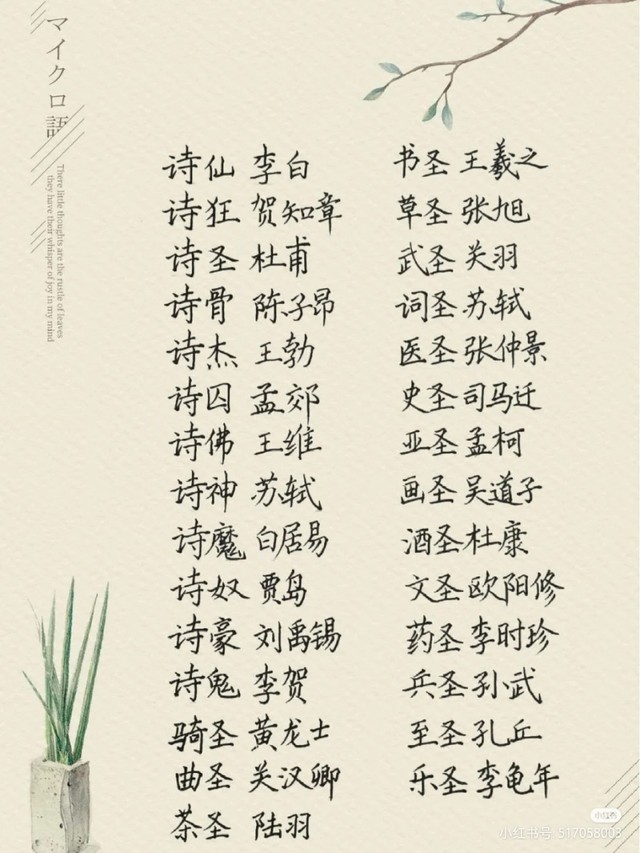 マイクロ語
There little thoughts are the rustle of leaves
they have their whisper of joy in my mind
诗仙 李白
诗狂 贺知章
诗圣 杜甫
诗骨 陈子昂
诗杰 王勃
诗囚 孟郊
诗佛 王维
诗神 苏轼
诗魔 白居易
诗奴 贾岛
诗豪 刘禹锡
诗鬼 李贺
骑圣 黄龙士
曲圣 关汉卿
茶圣 陆羽
书圣 王羲之
草圣 张旭
武圣 关羽
词圣 苏轼
医圣 张仲景
史圣 司马迁
亚圣 孟柯
画圣 吴道子
酒圣 杜康
文圣 欧阳修
药圣 李时珍
兵圣 孙武
至圣 孔丘
乐圣 李龟年
小红书
小红书号:517058003